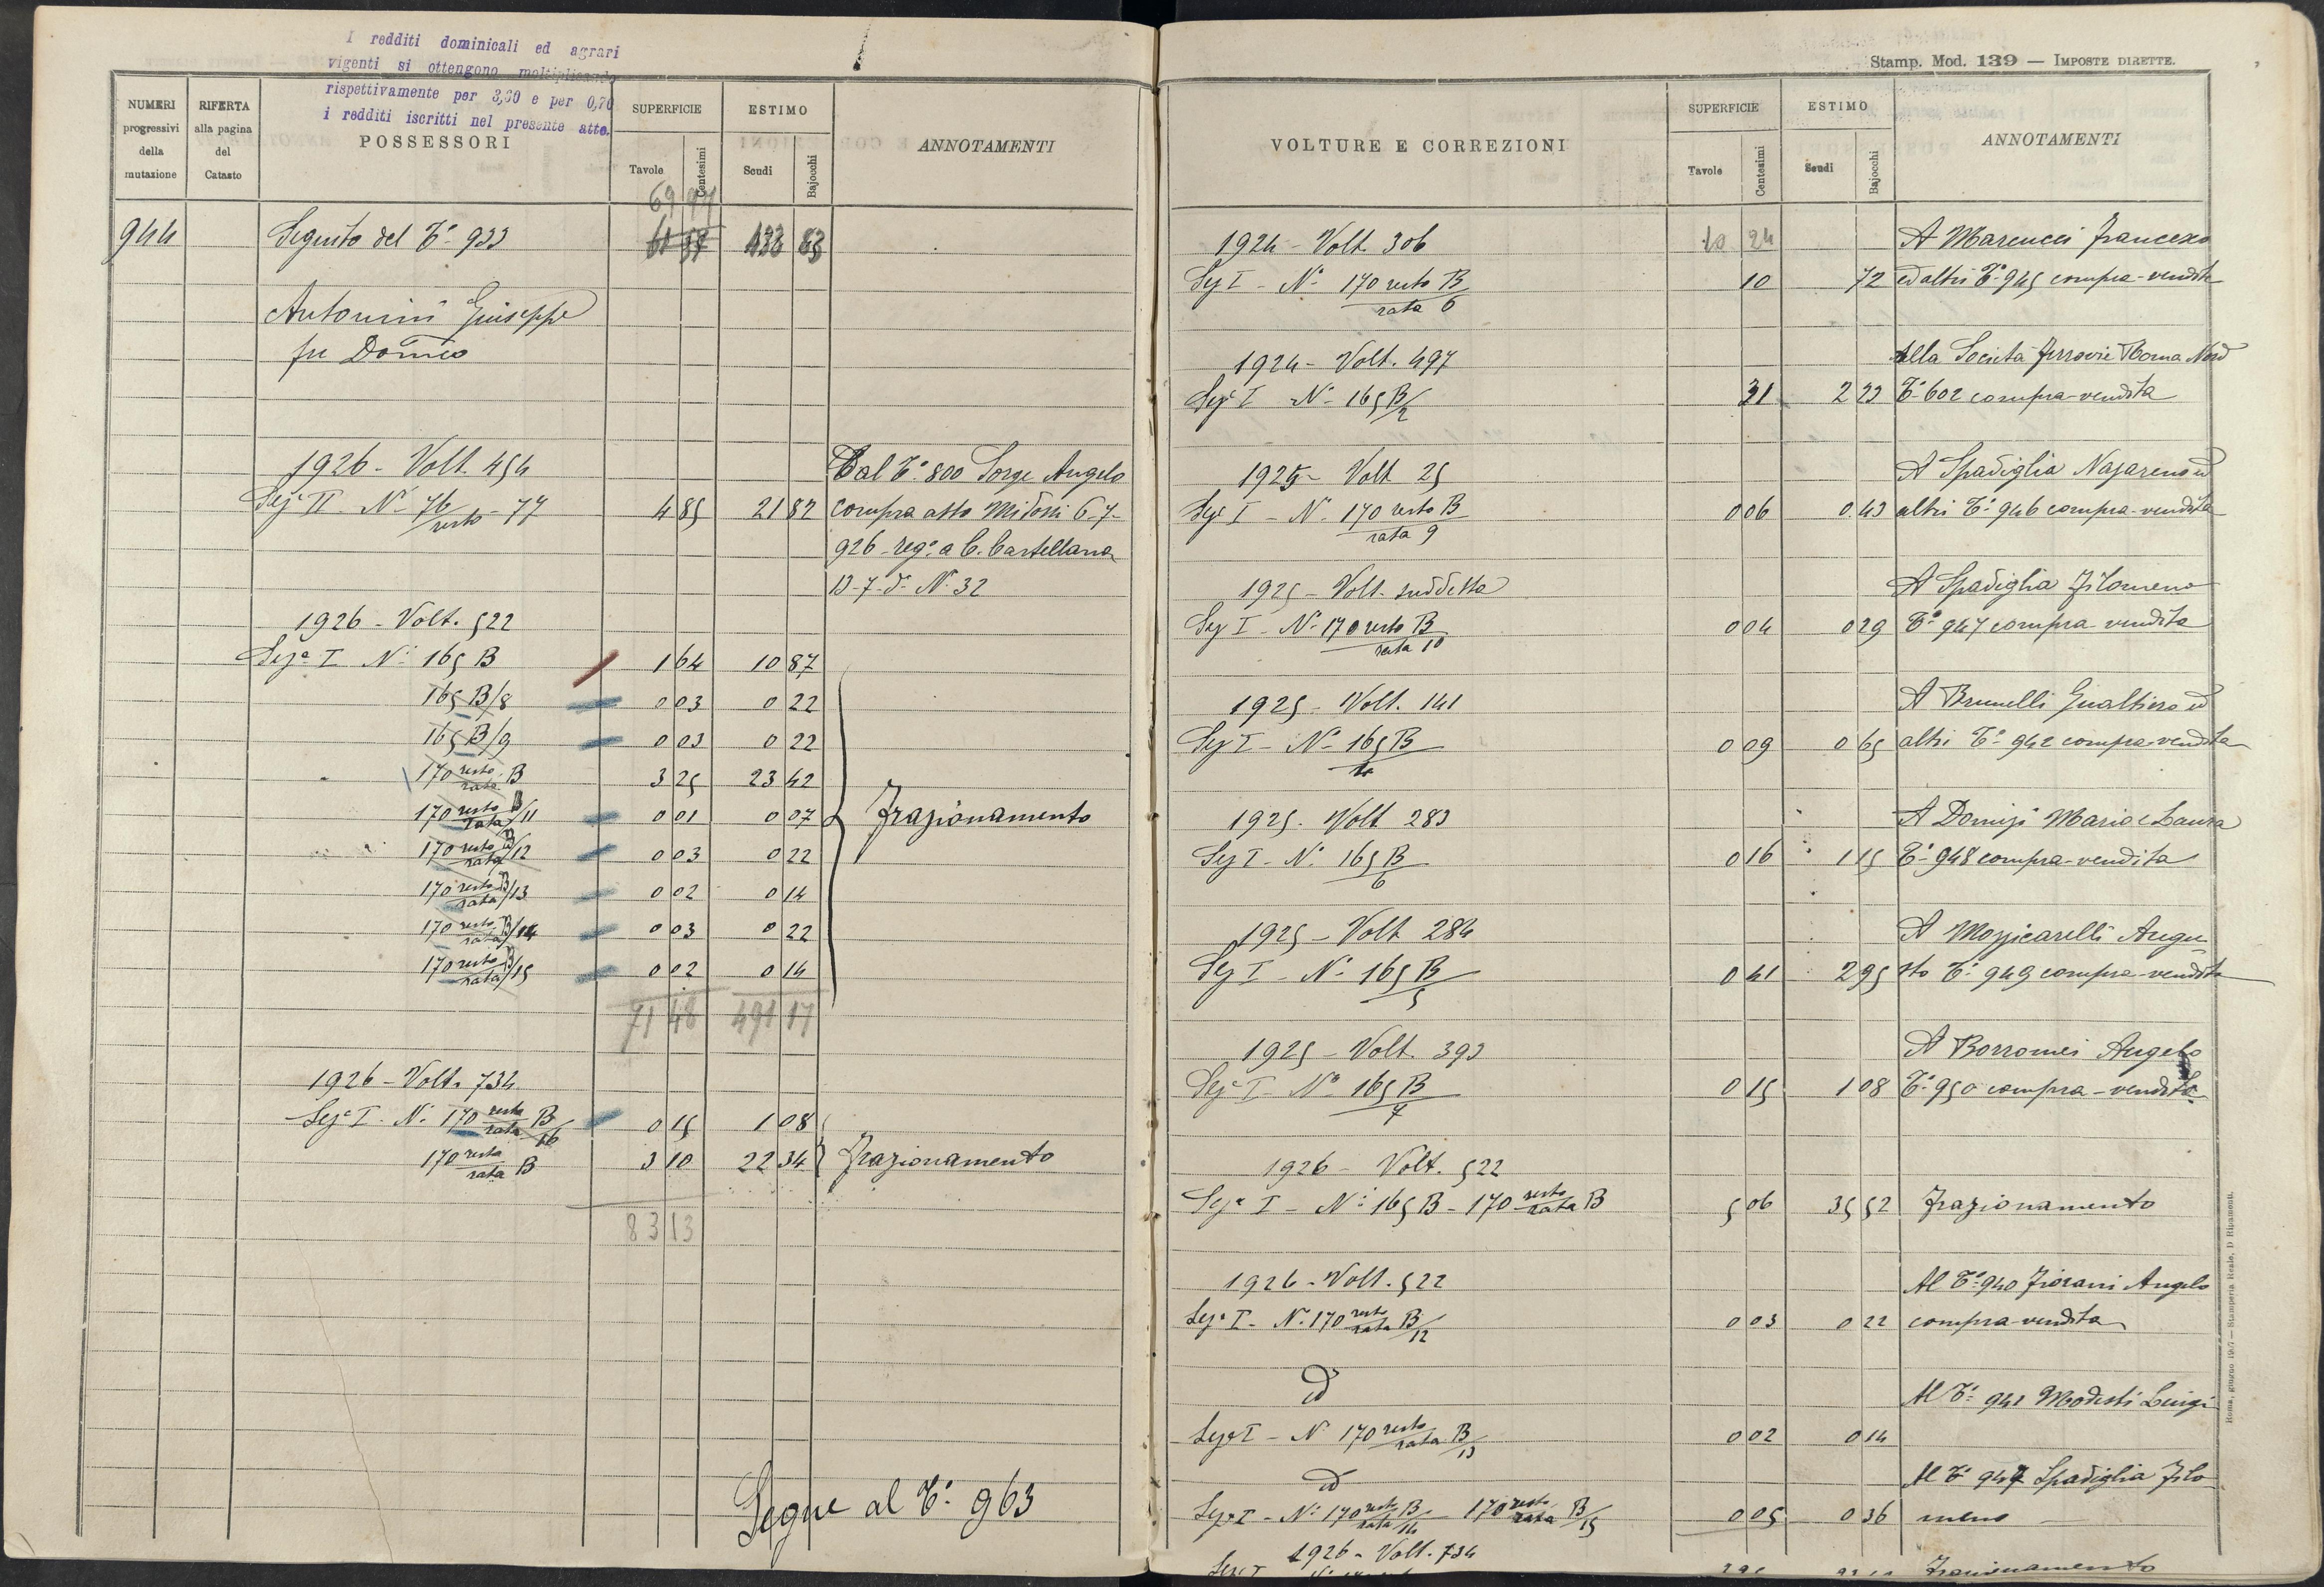 I redditi dominicali ed agrari
vigenti si ottengono moltiplicando
rispettivamente per 3,30 e per 0,70
i redditi iscritti nel presente atto.
NUMERI progressivi della mutazione
RIFERTA alla pagina del Catasto
POSSESSORI
SUPERFICIE
Tavole Centesimi
ESTIMO
Scudi Bajocchi
ANNOTAMENTI
69 97
944 Seguito del T.° 933 433 83
Antonini Giuseppe
fu Domco
1926 - Volt. 454 Dal T.° 800 Sorge Angelo
Seze II N.° 76/resto - 77 4 85 21 82 compra atto Midossi 6-7-
926 reg.° a C. Castellana
13-7-d.° N. 32
1926 - Volt. 522
Seze I N.° 165 B 1 64 10 87
165 B/8 0 03 0 22
165 B/9 0 03 0 22
170 resto/rata B 3 25 23 42
170 resto/rata B/11 0 01 0 07 Frazionamento
170 resto/rata B/12 0 03 0 22
170 resto/rata B/13 0 02 0 14
170 resto/rata B/14 0 03 0 22
170 resto/rata B/15 0 02 0 14
71 48 491 17
1926 - Volt. 734
Seze I. N.° 170 resto/rata B/16 0 15 1 08
170 resto/rata B 3 10 22 34 Frazionamento
83 13
Segue al T.° 963
Stamp. Mod. 139 — IMPOSTE DIRETTE.
VOLTURE E CORREZIONI
SUPERFICIE
Tavole Centesimi
ESTIMO
Scudi Bajocchi
ANNOTAMENTI
1924 - Volt. 306 10 24 A Marcucci Francesco
Sez I - N.° 170 resto B/rata 6 10 72 ed altri T.° 945 compra-vendita
1924 - Volt. 497 Alla Società Ferrovie Roma Nord
Seze I N.° 165 B/2 31 2 23 T.° 602 compra-vendita
1925 - Volt 25 A Spadiglia Nazareno ed
Seze I - N. 170 resto B/rata 9 0 06 0 43 altri T.° 946 compra-vendita
1925 - Volt. suddetta A Spadiglia Filomeno
Sez I - N.° 170 resto B/rata 10 0 04 0 29 T.° 947 compra-vendita
1925 - Volt. 141 A Brunelli Gualtiero ed
Sez I - N.° 165 B 0 09 0 65 altri T.° 942 compra-vendita
1925. Volt 283 A Domizi Mario e Laura
Sez I - N.° 165 B/6 0 16 1 15 T.° 948 compra-vendita
1925 - Volt 284 A Mozzicarelli Augu-
Sez I - N.° 165 B/5 0 41 2 95 sto T.° 949 compra-vendita
1925 - Volt. 393 A Borromei Angelo
Seze I - N.° 165 B/7 0 15 1 08 T.° 950 compra-vendita
1926 - Volt. 522
Seze I - N.° 165 B - 170 resto/rata B 5 06 35 52 Frazionamento
1926 - Volt. 522 Al T.° 940 Fiorani Angelo
Seze I - N. 170 resto/rata B/12 0 03 0 22 compra-vendita
d° Al T.° 941 Modesti Luigi
Seze I - N 170 resto/rata B/13 0 02 0 14
d° Al T.° 947 Spadiglia Filo-
Seze I - N.° 170 resto/rata B/14 - 170 resto/rata B/15 0 05 0 36 meno
1926 - Volt. 734
Frazionamento
Roma, giugno 1917 — Stamperia Reale, D Ripamonti.